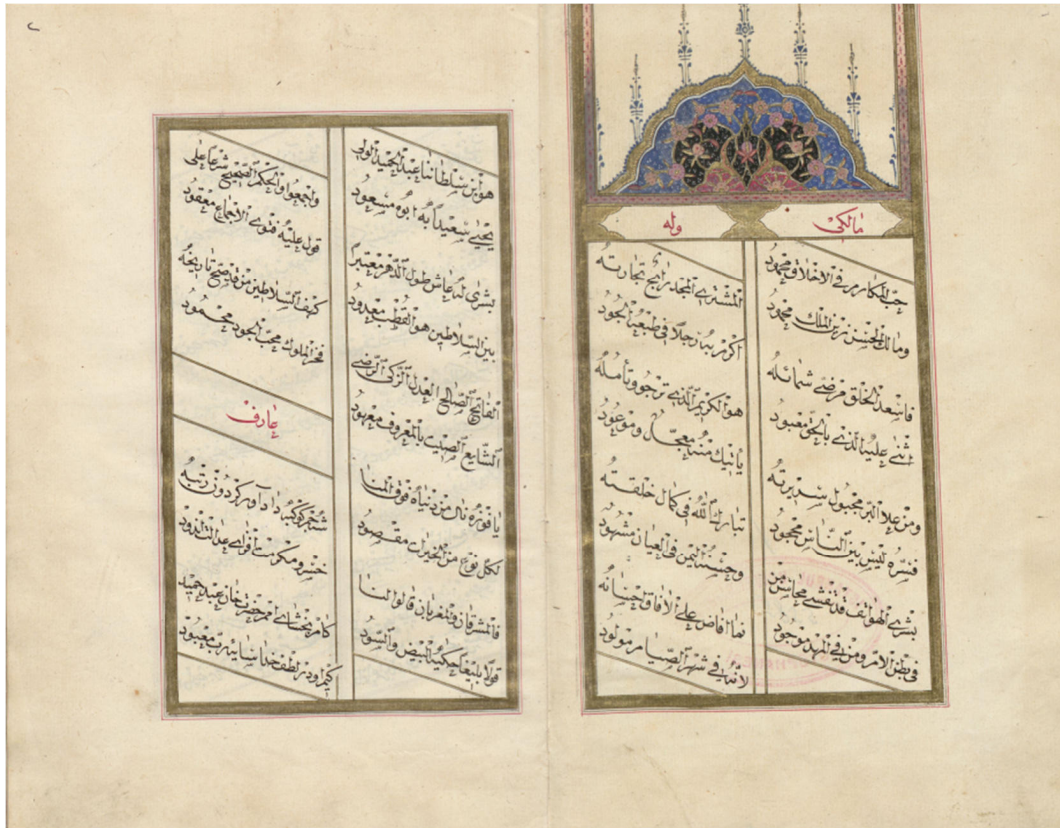 مالكى
وله
حب المكارم فى الاخلاق محمود
ومالك الحسن زين الملك محمود
فاسعد الخلق مرضى شمائله
اثنى عليه الذى بالحق معبود
ومن علا البر مجبول سريرته
فسره ليس بين الناس مجحود
بشرى الهواتف قد تفشى محاسن من
فى بطن الامر ومن فى المهد موجود
المشترى المجد رابح تجارته
اكرم به رجلا فى طبعه الجود
هو الكريم الذى ترجو وتامله
ياتيك منه معجل وموعود
تبارك الله فى كمال خلقته
وحشمته اليمن فى العيان مشهود
نعما افاض على الآفاق احسانه
لانه فى شهر الصيام مولود
هو ابن سلطاننا عبد الحميد الولى
يحيى سعيدا به ابوه مسعود
بشرى له عاش طول الدهر معتبرا
بين السلاطين هو القطب معدود
الفاتح الصالح العدل الزكى الرضى
الشايع الصيت بالمعروف معهود
يا فوزه نال من دنياه فوق المنا
لكل نوع من الخيرات مقصود
فالمشرقان والمغربان قالوا لنا
قولا بليغا حكيه البيض والسود
واجمعوا والحكم الصحيح شرعا على
قول عليه فتوى الاجماع معقود
كهف السلاطين من قد صح تاريخه
فخر الملوك محب الجود محمود
عارف
خسرو
كامر بخشاى امم حضرت خان عبد حميد